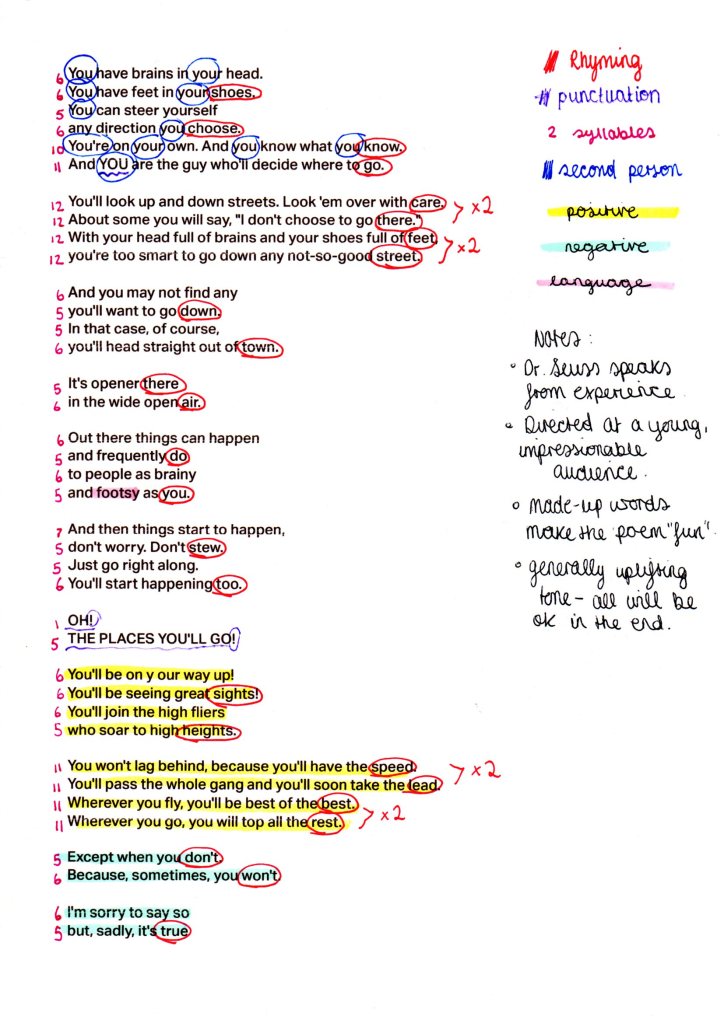 6 You have brains in your head.
6 You have feet in your shoes.
5 You can steer yourself
6 any direction you choose.
10 You're on your own. And you know what you know.
11 And YOU are the guy who'll decide where to go.
12 You'll look up and down streets. Look 'em over with care. > x2
12 About some you will say, "I don't choose to go there."
12 With your head full of brains and your shoes full of feet, > x2
12 you're too smart to go down any not-so-good street.
6 And you may not find any
5 you'll want to go down.
5 In that case, of course,
6 you'll head straight out of town.
5 It's opener there
6 in the wide open air.
6 Out there things can happen
5 and frequently do
6 to people as brainy
5 and footsy as you.
7 And then things start to happen,
5 don't worry. Don't stew.
5 Just go right along.
6 You'll start happening too.
1 OH!
5 THE PLACES YOU'LL GO!
6 You'll be on y our way up!
6 You'll be seeing great sights!
6 You'll join the high fliers
5 who soar to high heights.
11 You won't lag behind, because you'll have the speed. > x2
11 You'll pass the whole gang and you'll soon take the lead.
11 Wherever you fly, you'll be best of the best. > x2
11 Wherever you go, you will top all the rest.
5 Except when you don't.
6 Because, sometimes, you won't.
6 I'm sorry to say so
5 but, sadly, it's true
Rhyming
punctuation
2 syllables
second person
positive
negative
language
Notes:
• Dr. Seuss speaks
from experience.
• Directed at a young,
impressionable
audience.
• made-up words
make the poem "fun".
• generally uplifting
tone - all will be
ok in the end.